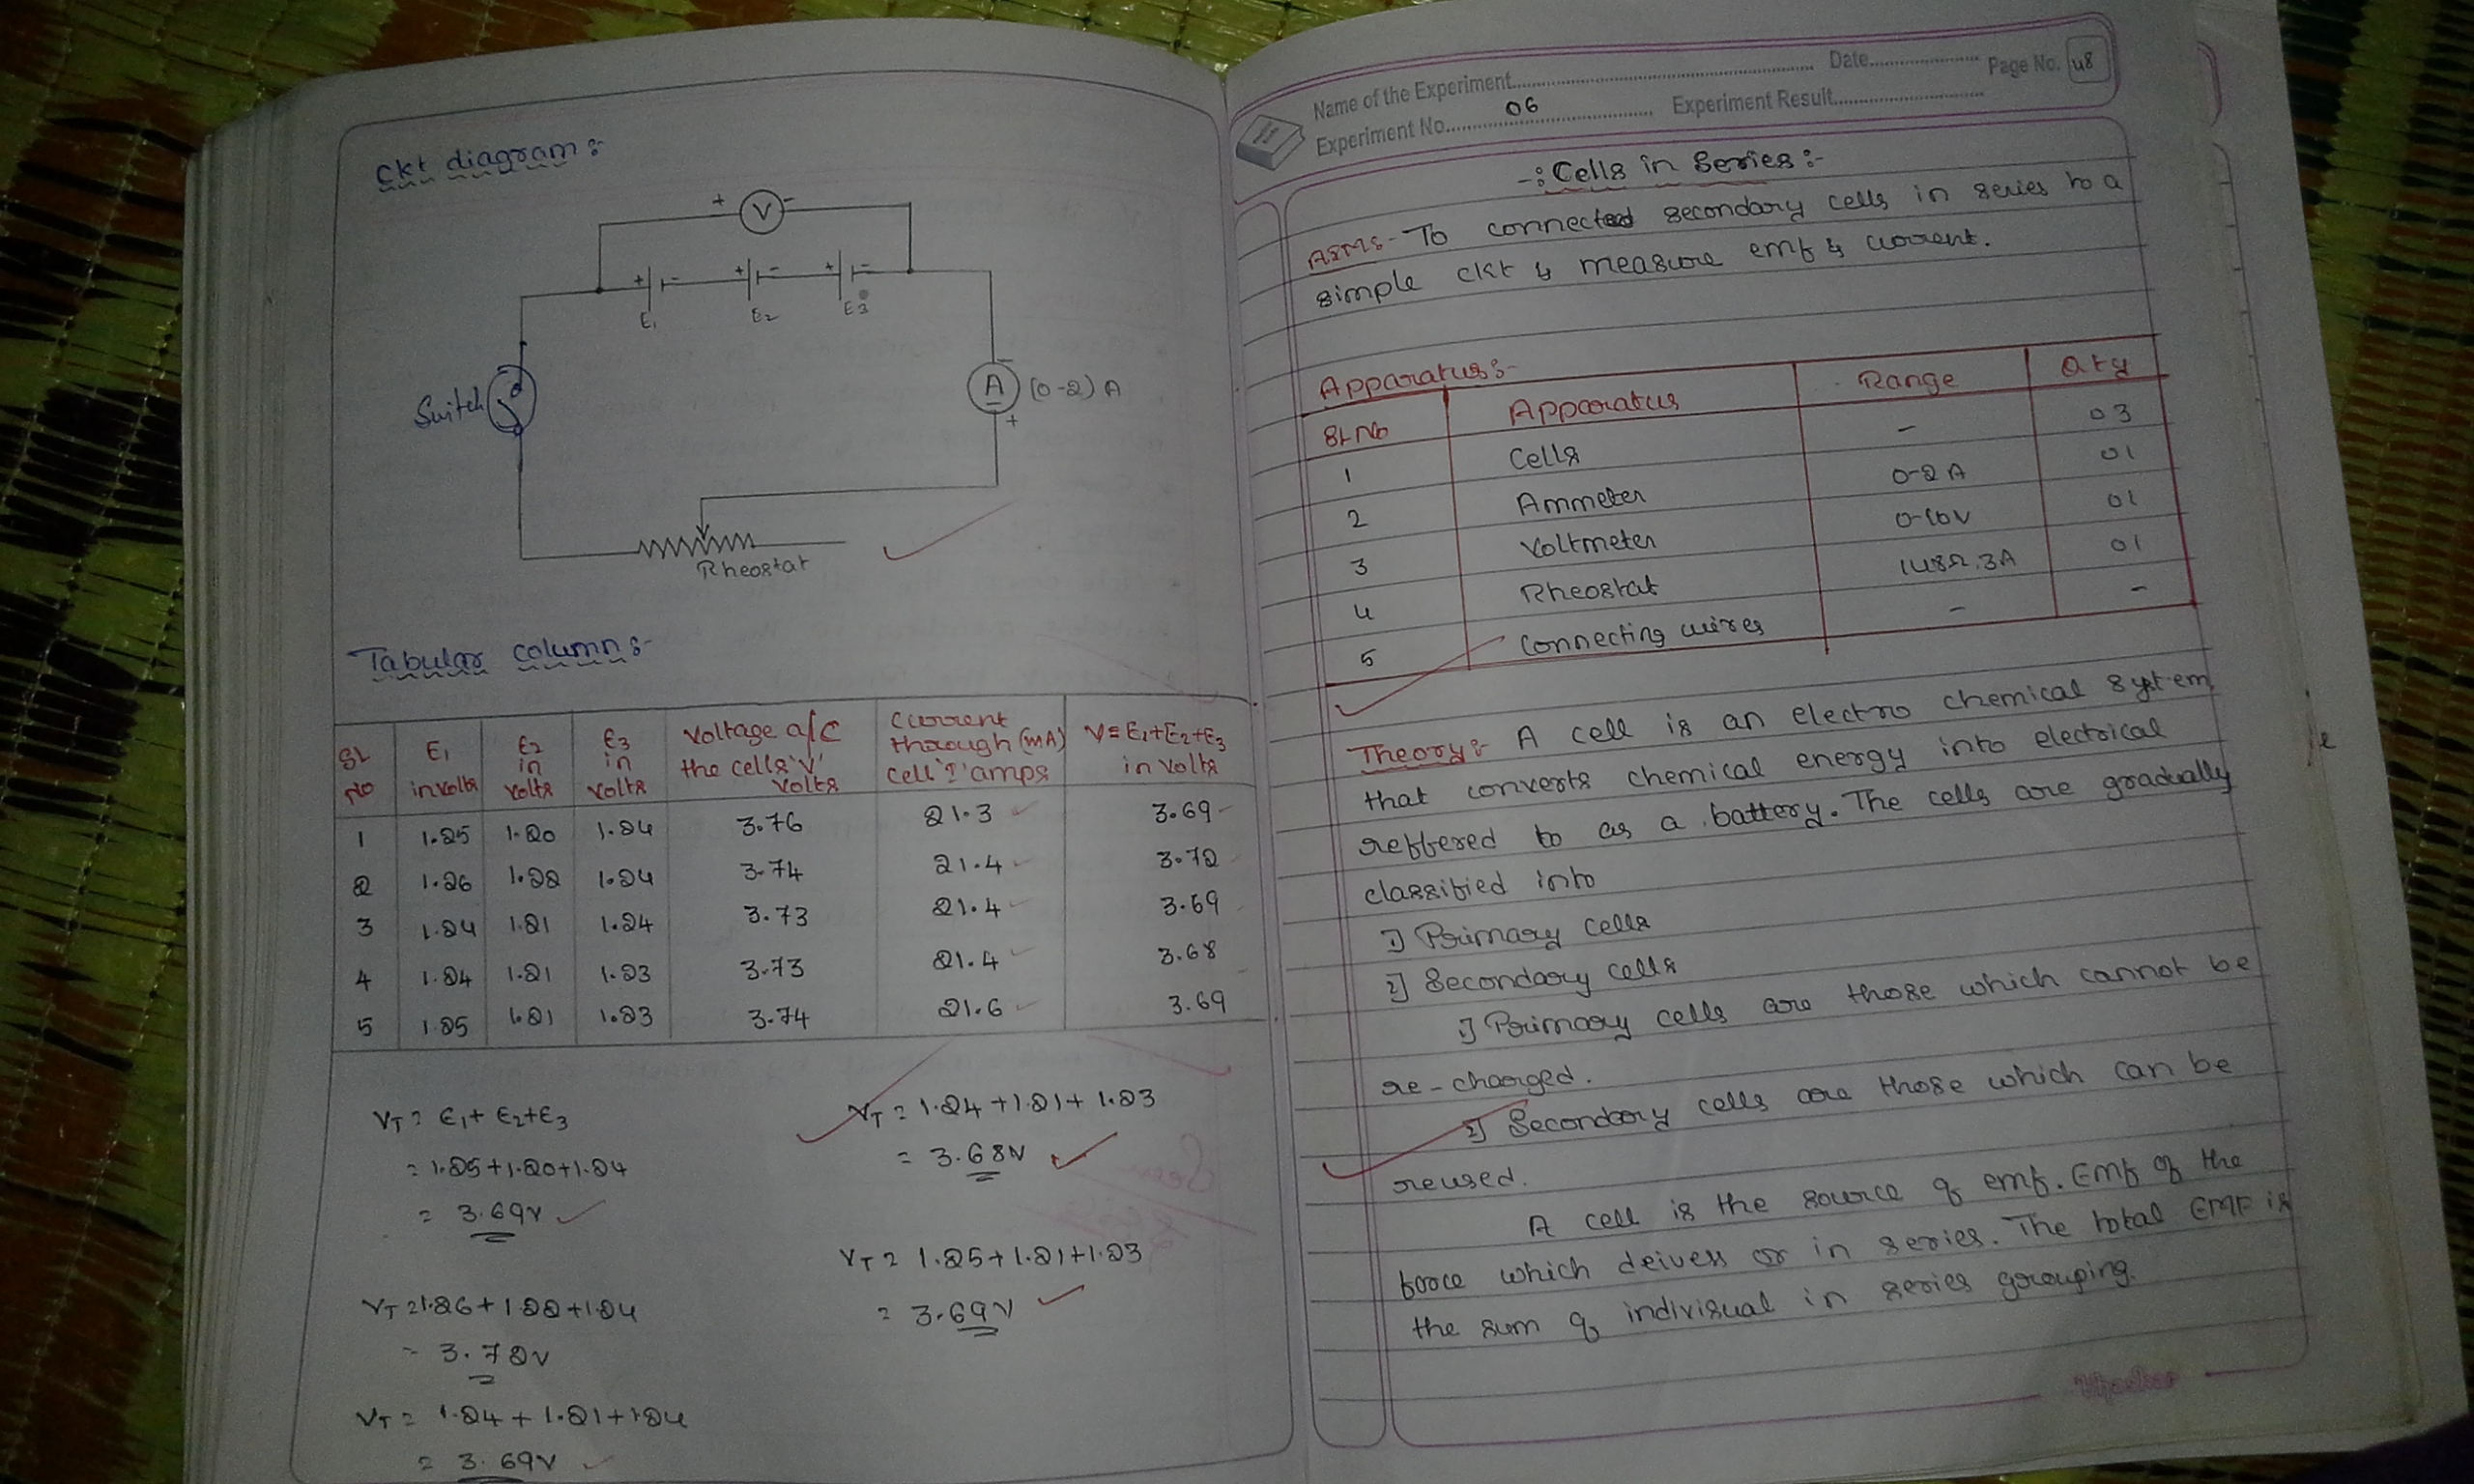 Ckt diagram:
+ V -
+ - + - + -
E1 E2 E3
Switch
-
A (0-2) A
+
Rheostat
Tabular column:-
Sl No E1 in volts E2 in volts E3 in volts Voltage a/c the cells 'V' volts Current through (mA) cell 'I' amps V=E1+E2+E3 in volts
1 1.25 1.20 1.24 3.76 21.3 3.69
2 1.26 1.22 1.24 3.74 21.4 3.72
3 1.24 1.21 1.24 3.73 21.4 3.69
4 1.24 1.21 1.23 3.73 21.4 3.68
5 1.25 1.21 1.23 3.74 21.6 3.69
VT = E1+ E2+E3
= 1.25+1.20+1.24
= 3.69V
VT = 1.26+1.22+1.24
= 3.72V
VT = 1.24+1.21+1.24
= 3.69V
VT = 1.24+1.21+1.23
= 3.68V
VT = 1.25+1.21+1.23
= 3.69V
Name of the Experiment Date Page No. 48
Experiment No. 06 Experiment Result
-: Cells in Series :-
AIM:- To connected secondary cells in series to a
simple ckt & measure emf & current.
Apparatus:-
Sl.No Apparatus Range Qty
1 Cells - 03
2 Ammeter 0-2A 01
3 Voltmeter 0-10V 01
4 Rheostat 148Ω, 3A 01
5 Connecting wires - -
Theory:- A cell is an electro chemical system
that converts chemical energy into electrical
reffered to as a battery. The cells are gradually
classified into
1] Primary cells
2] Secondary cells
1] Primary cells are those which cannot be
re-charged.
2] Secondary cells are those which can be
reused.
A cell is the source of emf. Emf of the
force which deivess or in series. The total EMF is
the sum of indivisual in series grouping.